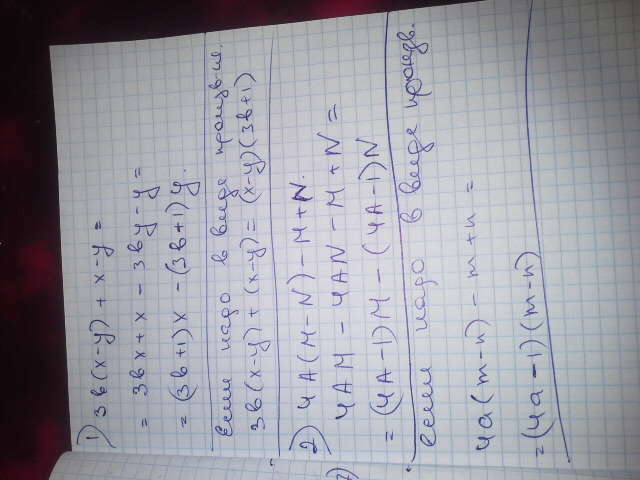 1) 3в(x-y) + x-y =
= 3вx + x - 3вy - y =
= (3в+1)x - (3в+1)y.
Если надо в виде произв-ие.
3в(x-y) + (x-y) = (x-y)(3в+1)
2) 4A(M-N) - M + N.
4AM - 4AN - M + N =
= (4A-1)M - (4A-1)N
если надо в виде произв.
4a(m-n) - m + n =
= (4a-1)(m-n)